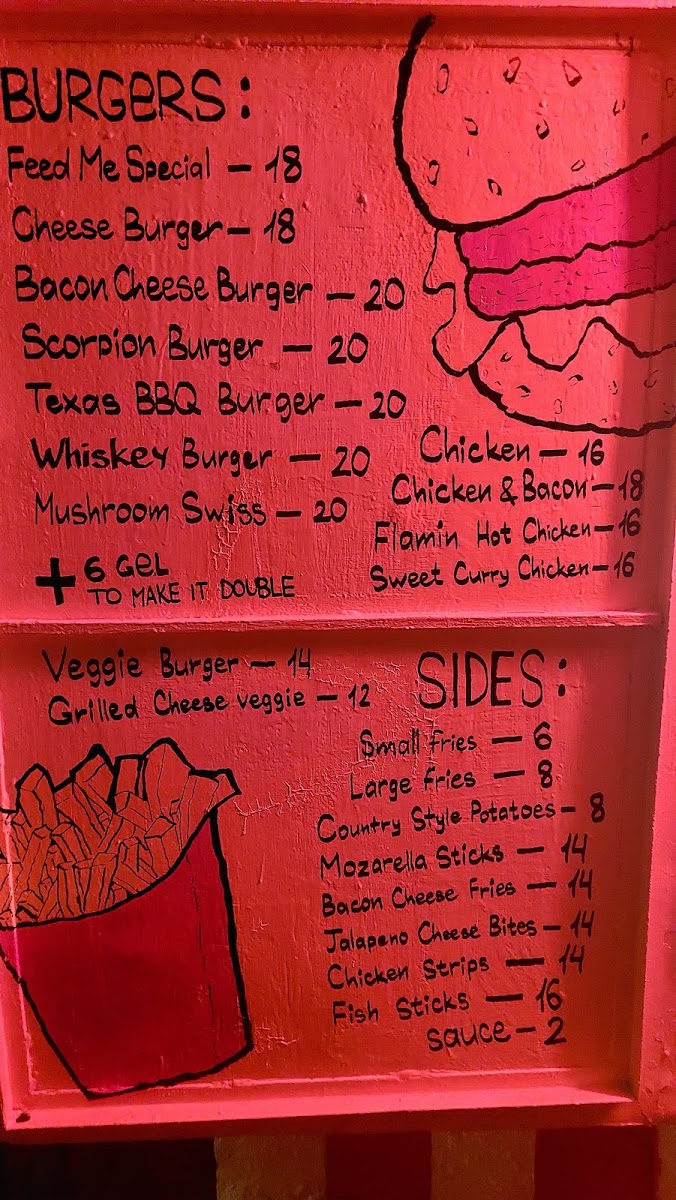 BURGERS:
Feed Me Special — 18
Cheese Burger — 18
Bacon Cheese Burger — 20
Scorpion Burger — 20
Texas BBQ Burger — 20
Whiskey Burger — 20
Mushroom Swiss — 20
+ 6 GEL
TO MAKE IT DOUBLE
Chicken — 16
Chicken & Bacon — 18
Flamin Hot Chicken — 16
Sweet Curry Chicken — 16
Veggie Burger — 14
Grilled Cheese veggie — 12
SIDES:
Small fries — 6
Large fries — 8
Country Style Potatoes — 8
Mozarella Sticks — 14
Bacon Cheese Fries — 14
Jalapeno Cheese Bites — 14
Chicken Strips — 14
Fish Sticks — 16
sauce — 2